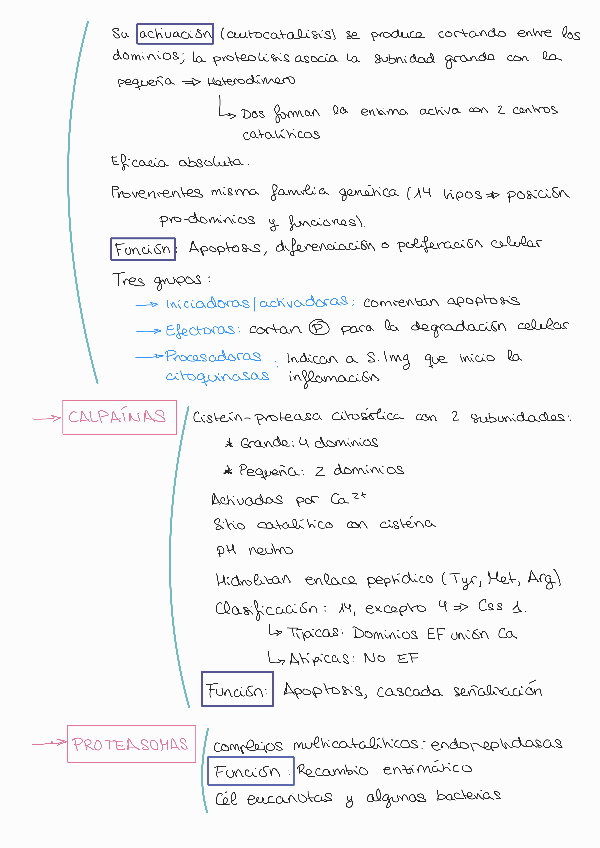 Su activación (autocatálisis) se produce cortando entre los
dominios; la proteolisis asocia la subnidad grande con la
pequeña => Heterodímero
↳ Dos forman la enzima activa con 2 centros
catalíticos
Eficacia absoluta.
Provenientes misma familia genética (14 tipos => posición
pro-dominios y funciones).
Función: Apoptosis, diferenciación o poliferación celular
Tres grupos:
→ Iniciadoras/activadoras: comienzan apoptosis
→ Efectoras: cortan Ⓟ para la degradación celular
→ Procesadoras : Indican a S.Img que inicio la
citoquinasas inflamación
→ CALPAÍNAS Cisteín-proteasa citosólica con 2 subunidades:
* Grande: 4 dominios
* Pequeña: 2 dominios
Activadas por Ca²⁺
Sitio catalítico con cisteína
pH neutro
Hidrolizan enlace peptídico (Tyr, Met, Arg)
Clasificación: 14, excepto 4 => Css 1.
↳ Típicas: Dominios EF unión Ca
↳ Atípicas: No EF
Función: Apoptosis, cascada señalización
→ PROTEASOMAS complejos multicatalíticos: endopeptidasas
Función: Recambio enzimático
Cél eucariotas y algunas bacterias